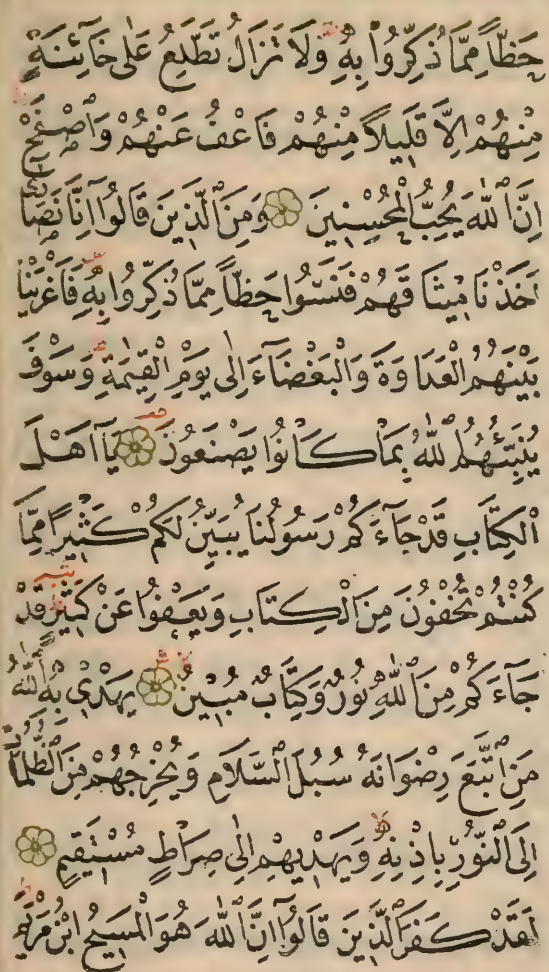 حَظًّا مِمَّا ذُكِّرُوا بِهِ وَلَا تَزَالُ تَطَّلِعُ عَلَى خَائِنَةٍ
مِنْهُمْ اِلَّا قَلِيلًا مِنْهُمْ فَاعْفُ عَنْهُمْ وَاصْفَحْ
اِنَّ اللّٰهَ يُحِبُّ الْمُحْسِنِينَ وَمِنَ الَّذِينَ قَالُوا اِنَّا نَصَارٰى
اَخَذْنَا مِيثَاقَهُمْ فَنَسُوا حَظًّا مِمَّا ذُكِّرُوا بِهِ فَاَغْرَيْنَا
بَيْنَهُمُ الْعَدَاوَةَ وَالْبَغْضَآءَ اِلٰى يَوْمِ الْقِيٰمَةِ وَسَوْفَ
يُنَبِّئُهُمُ اللّٰهُ بِمَا كَانُوا يَصْنَعُونَ يَآ اَهْلَ
الْكِتَابِ قَدْ جَآءَكُمْ رَسُولُنَا يُبَيِّنُ لَكُمْ كَثِيرًا مِمَّا
كُنْتُمْ تُخْفُونَ مِنَ الْكِتَابِ وَيَعْفُوا عَنْ كَثِيرٍ قَدْ
جَآءَكُمْ مِنَ اللّٰهِ نُورٌ وَكِتَابٌ مُبِينٌ يَهْدِي بِهِ اللّٰهُ
مَنِ اتَّبَعَ رِضْوَانَهُ سُبُلَ السَّلَامِ وَيُخْرِجُهُمْ مِنَ الظُّلُمَاتِ
اِلَى النُّورِ بِاِذْنِهِ وَيَهْدِيهِمْ اِلٰى صِرَاطٍ مُسْتَقِيمٍ
لَقَدْ كَفَرَ الَّذِينَ قَالُوا اِنَّ اللّٰهَ هُوَ الْمَسِيحُ ابْنُ مَرْيَمَ